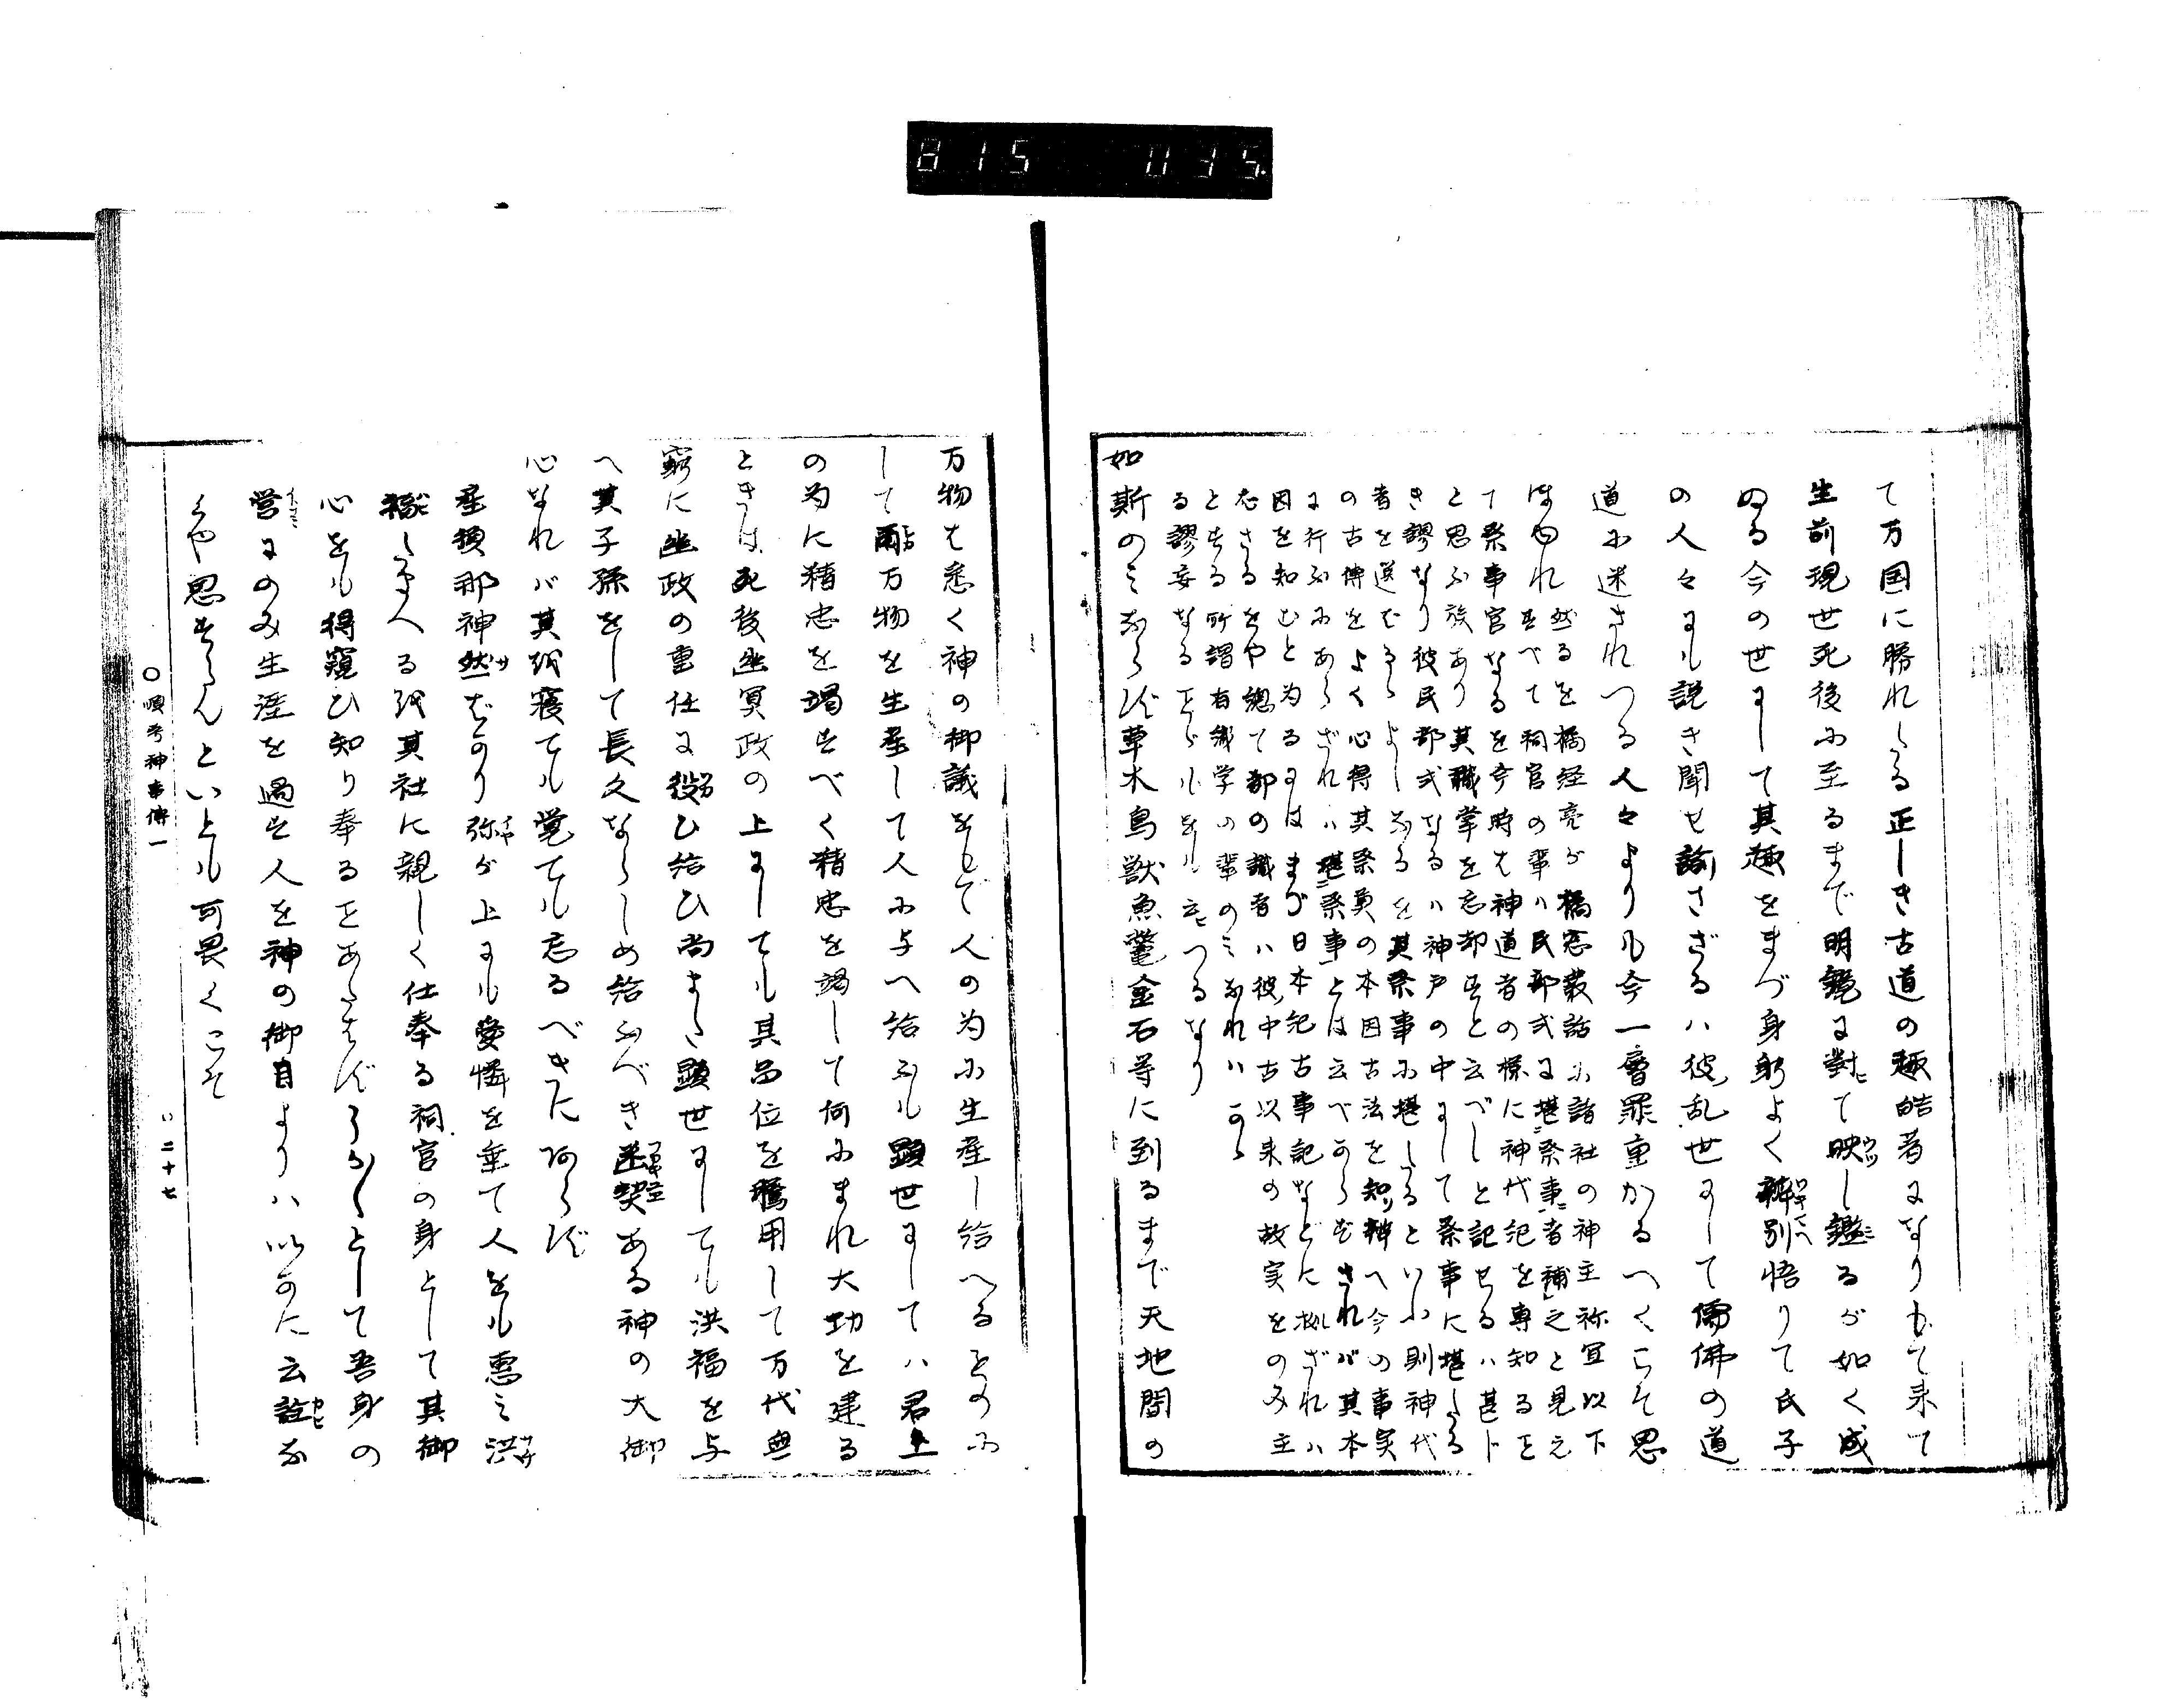 て万国に勝れたる正しき古道の趣皓著になりもて来て
生前現世死後に至るまで明鏡に対て映し鑑るが如く成
ぬる今の世にして其趣をまづ身躬よく辨別悟りて氏子
の人々にも説き聞せ諭さざるハ彼乱世にして儒佛の道
道に迷されつる人々よりも今一層罪重かるへくこそ思
はゆれ
然るを橋経亮が橘窓叢話に諸社の神主祢宜以下
すべて祠官の輩ハ民部式に堪祭事者補之と見え
て祭事官なるを今時は神道者の様に神代記を専知ること
と思ふ族あり其職掌を忘却すと云べしと記せるハ甚ト
き謬なり彼民部式なるハ神戸の中にして祭事に堪たる
者を選むるよしなるを其祭事に堪したるといふ則神代
の古傳をよく心得其祭奠の本因古法を知り辨へ今の事実
に行ふにあらざれハ堪祭事とは云べからずされバ其本
因を知むと為るにはまづ日本紀古事記などに拠ざれハ
なさるをや総て都の識者ハ彼中古以来の故実をのみ主
とする所謂有識学の輩のミなれハかゝ
る謬妄なることどもをも云つるなり
如斯のミならず草木鳥獣魚鼈金石等に到るまで天地間の
万物は悉く神の御議をもて人の為に生産し給へるものに
して爾万物を生産して人に与へ給ふも顕世にしてハ君上
の為に精忠を竭すべく精忠を竭して何にまれ大功を建る
ときは死後幽冥政の上にしても其品位を騰用して万代無
窮に幽政の重任に役ひ給ひ尚また顕世にしても洪福を与
へ其子孫をして長久ならしめ給ふべき契ある神の大御
心なれバ其訳寝ても覚ても忘るべきにあらず
産須那神然ばかり弥が上にも愛憐を垂て人をも恵ミ洪
たまへる訳其社に親しく仕奉る祠官の身として其御
心をも得窺ひ知り奉ることあたはずうか〱として吾身の
営にのみ生涯を過す人を神の御目よりハ以かに云詮な
くや思すらんといとも可畏くこそ
〇順考神事傳一
二十七
815 035